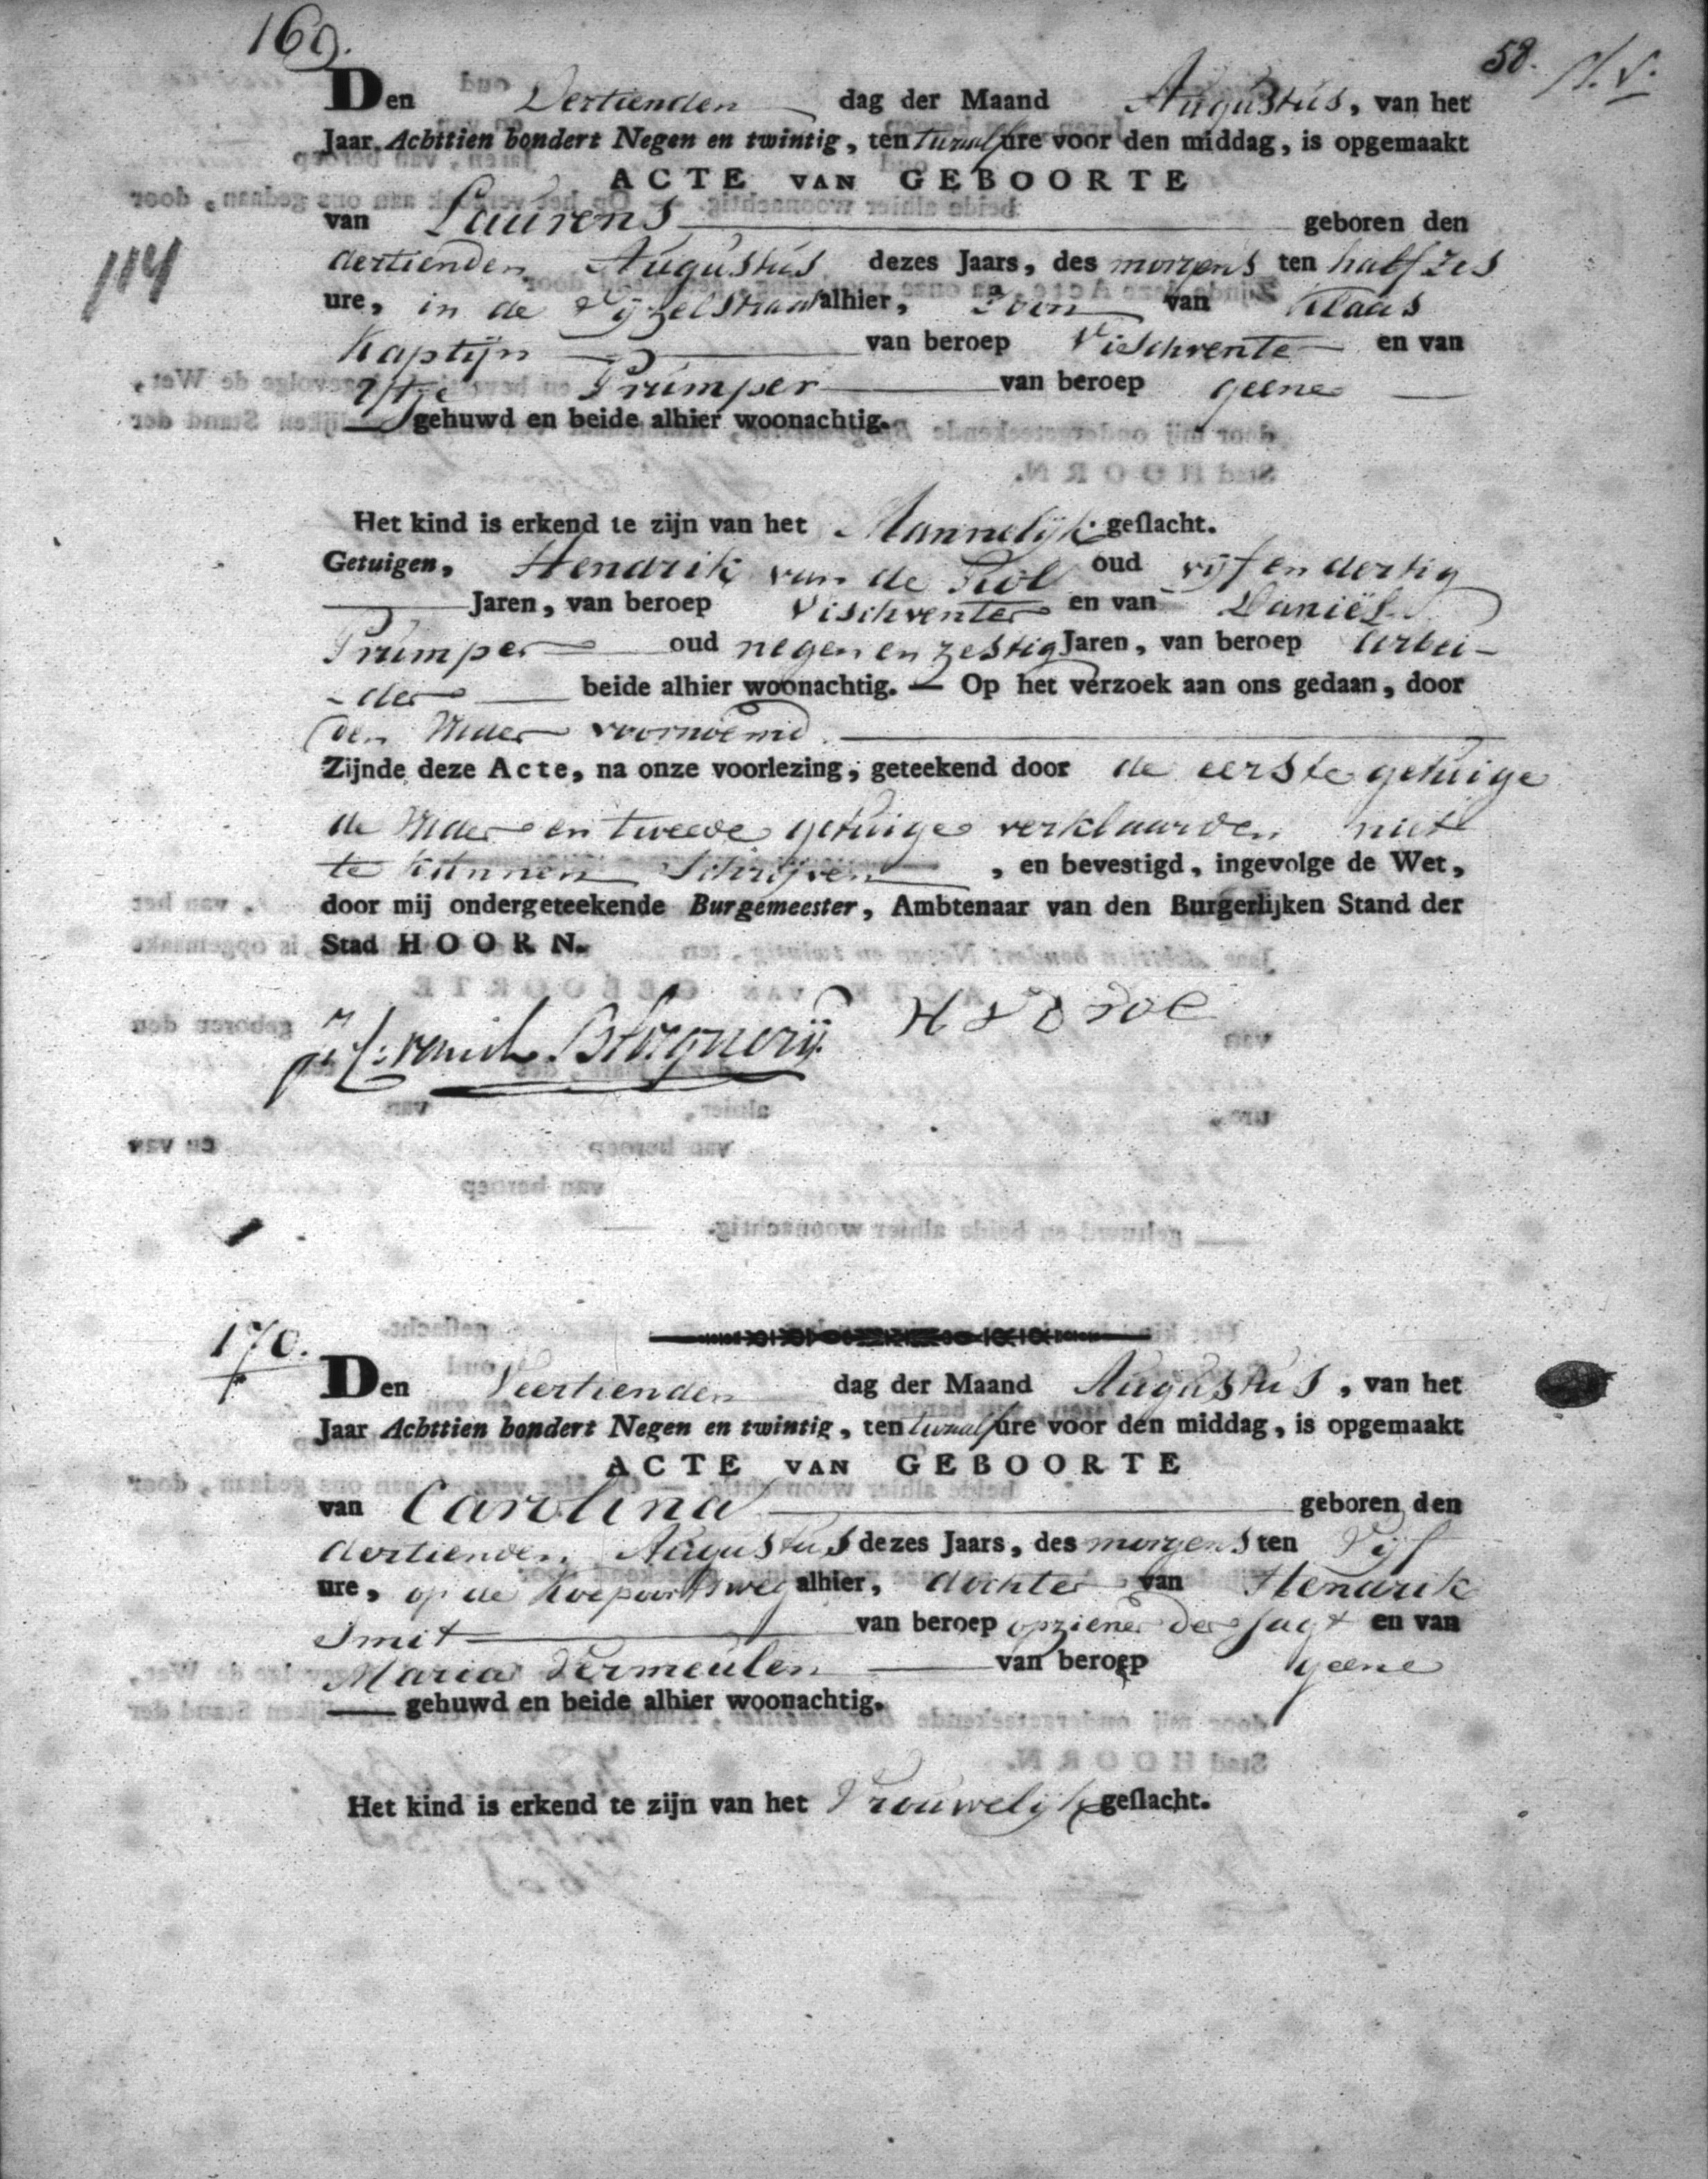 169.
58.
Den Dertienden dag der Maand Augustus, van het
Jaar Achttien hondert Negen en twintig, ten twaalf ure voor den middag, is opgemaakt
ACTE VAN GEBOORTE
van Laurens geboren den
114
dertienden Augustus dezes Jaars, des morgens ten half zes
ure, in de Vijzelstraat alhier, Zoon van Klaas
Kaptijn van beroep Vischvente en van
Prumper van beroep geene
gehuwd en beide alhier woonachtig.
Het kind is erkend te zijn van het Mannelijk geslacht.
Getuigen, Hendrik van de Rol oud vijf en dertig
Jaren, van beroep Vischventer en van Daniël
Prumper oud negen en zestig Jaren, van beroep Arbei-
-der beide alhier woonachtig. — Op het verzoek aan ons gedaan, door
den Vader voornoemd.
Zijnde deze Acte, na onze voorlezing, geteekend door de eerste getuige
de Vader en tweede getuige verklaarden niet
te kunnen Schrijven, en bevestigd, ingevolge de Wet,
door mij ondergeteekende Burgemeester, Ambtenaar van den Burgerlijken Stand der
Stad HOORN.
H V D rol
170.
Den Veertienden dag der Maand Augustus, van het
Jaar Achttien hondert Negen en twintig, ten twaalf ure voor den middag, is opgemaakt
ACTE VAN GEBOORTE
van Carolina geboren den
dertienden Augustus dezes Jaars, des morgens ten Vijf
ure, op de Koepoortsweg alhier, dochter van Hendrik
Smit van beroep opziener der Jagt en van
Maria Vermeulen van beroep geene
gehuwd en beide alhier woonachtig.
Het kind is erkend te zijn van het Vrouwelijk geslacht.